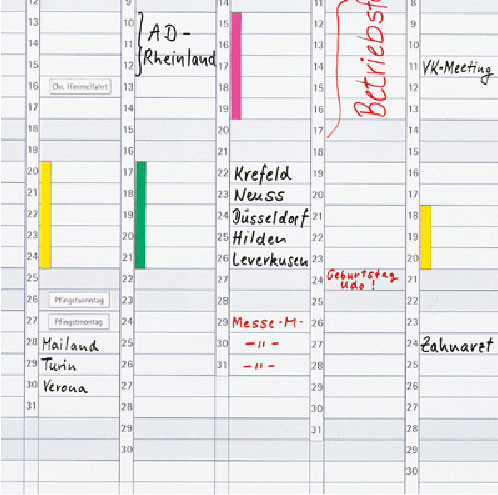 12
13
14
15
16 Chr. Himmelfahrt
17
18
19
20
21
22
23
24
25
26 Pfingstsonntag
27 Pfingstmontag
28 Mailand
29 Turin
30 Verona
31
9
10
11 AD-
12 Rheinland
13
14
15
16
17
18
19
20
21
22
23
24
25
26
27
28
29
30
14
15
16
17
18
19
20
21
22 Krefeld
23 Neuss
24 Düsseldorf
25 Hilden
26 Leverkusen
27
28
29 Messe-M-
30 -"-
31 -"-
11
12
13
14
15
16
17
Betriebsf
18
19
20
21
22
23
24 Geburtstag
Udo!
25
26
27
28
29
30
31
8
9
10
11 VK-Meeting
12
13
14
15
16
17
18
19
20
21
22
23
24 Zahnarzt
25
26
27
28
29
30